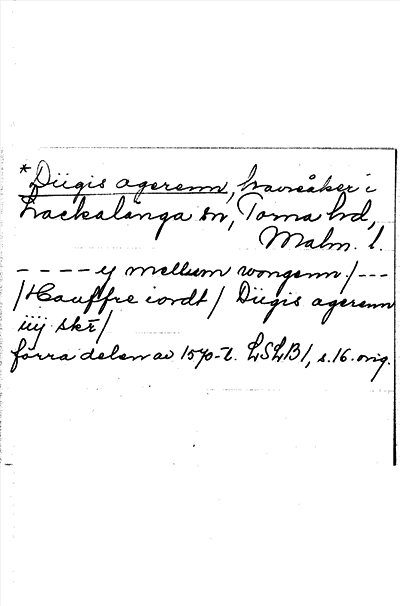 *Diigis agerenn, havreåker i
Lackalänga sn, Torna hd,
Malm. l.
- - - - y mellum wongenn / - - -
/ Hauffre iordt / Diigis agerenn
iiij skr /
förra delen av 1570-t. LSLB 1, s. 16. orig.